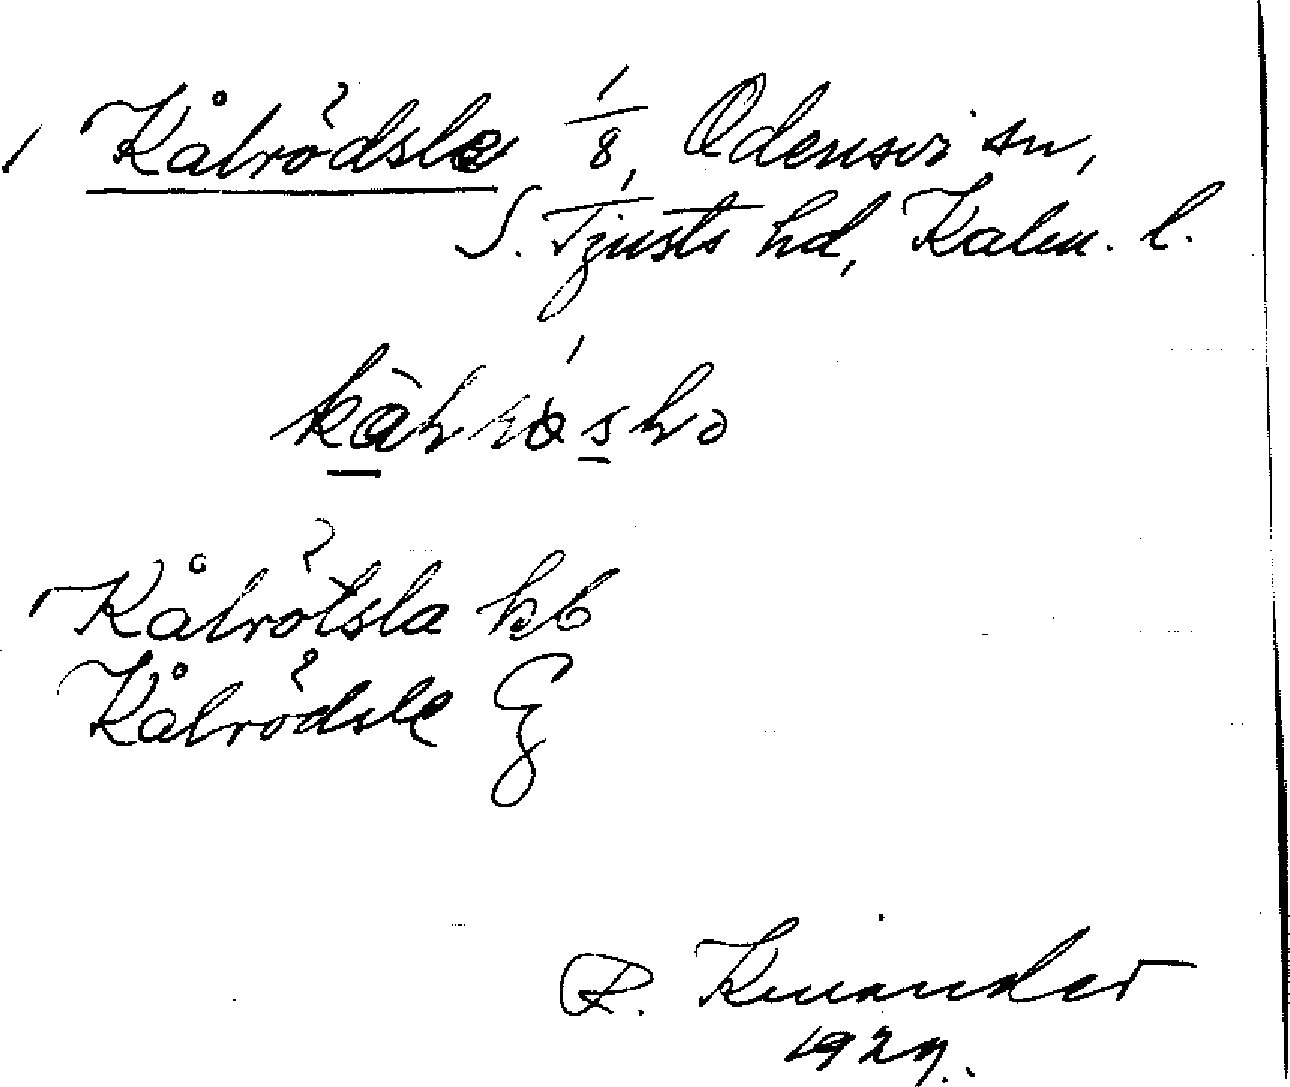 Kålrödsle 1/8, Odensvi sn,
S. Tjusts hd, Kalm. l.
Kålrötsla kb
Kålrödsle
R. Kinander
1929.